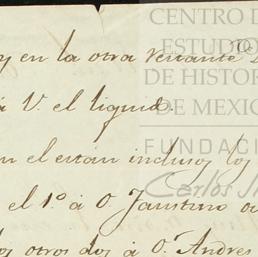 CENTRO D
ESTUDIO
DE HISTOR
DE MEXIC
FUNDAC
Carlos
y en la otra
á V. el liquid.
n el están inclusos los
el 1.º á D. Faustino
los otros dos á D. Andres